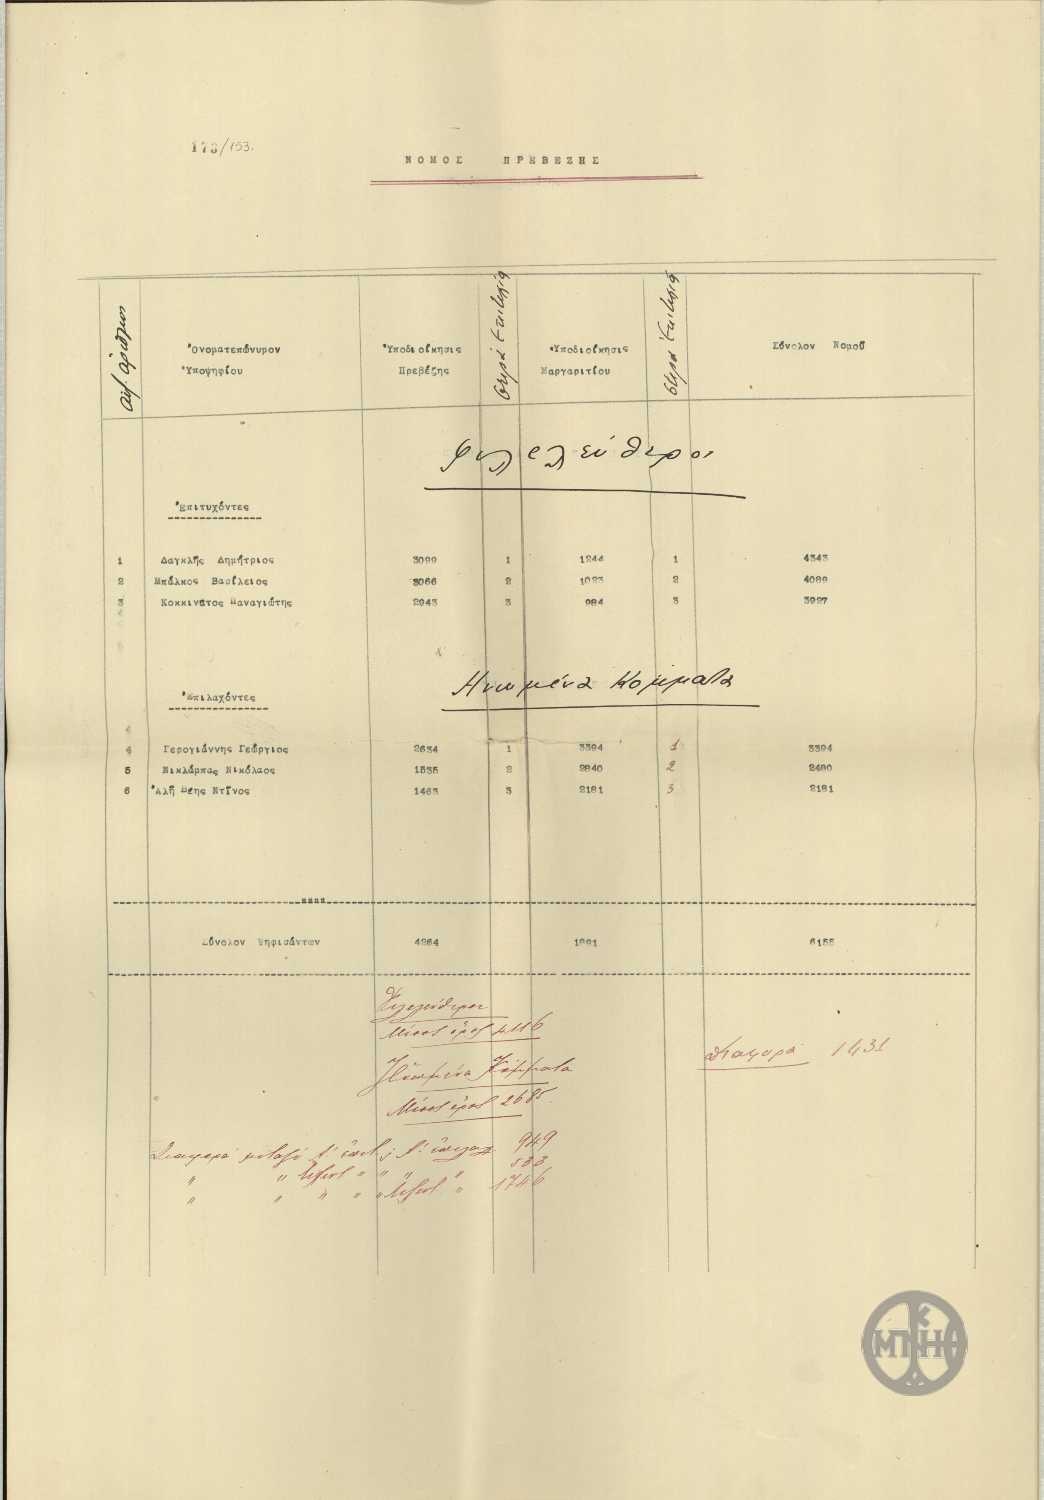 173/153.
ΝΟΜΟΣ ΠΡΕΒΕΖΗΣ
Αὔξ. ἀριθμός
Ὀνοματεπώνυμον Ὑποψηφίου
Ὑποδιοίκησις Πρεβέζης
σειρά ἐπιτυχίας
Ὑποδιοίκησις Μαργαριτίου
σειρά ἐπιτυχίας
Σύνολον Νομοῦ
Φιλελεύθεροι
Ἐπιτυχόντες
1 Δαγκλῆς Δημήτριος 3099 1 1244 1 4343
2 Μπάλκος Βασίλειος 3066 2 1023 2 4089
3 Κοκκινᾶτος Παναγιώτης 2943 3 984 3 3927
Ηνωμένα Κόμματα
Ἐπιλαχόντες
4 Γερογιάννης Γεώργιος 2634 1 3394 1 3394
5 Νικλάμπας Νικόλαος 1535 2 2840 2 2480
6 Ἀλῆ Βέης Ντῖνος 1463 3 2181 3 2181
Σύνολον Ψηφισάντων 4264 1891 6155
Φιλελεύθεροι
Μέσος ὅρος 4116
Διαφορά 1431
Ἡνωμένα Κόμματα
Μέσος ὅρος 2685.
Διαφορά μεταξύ Α' ἐπιτ. Α' ἐπιλαχ 949
" " " " " 533
" " " " " " 1746
ΜΠΚΗΘ